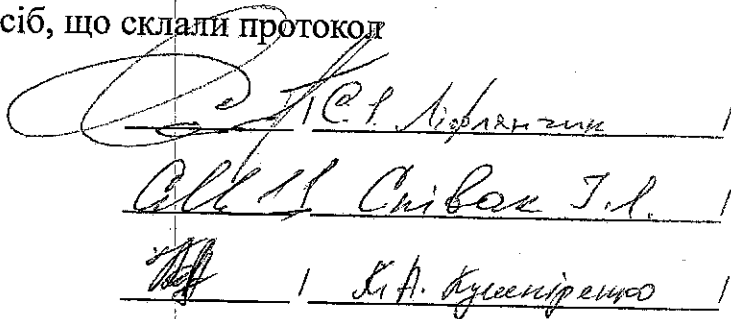 сіб, що склали протокол
/ С.І. Ліфлянчик /
/ Співак І.Л. /
/ К.А. Кушніренко /